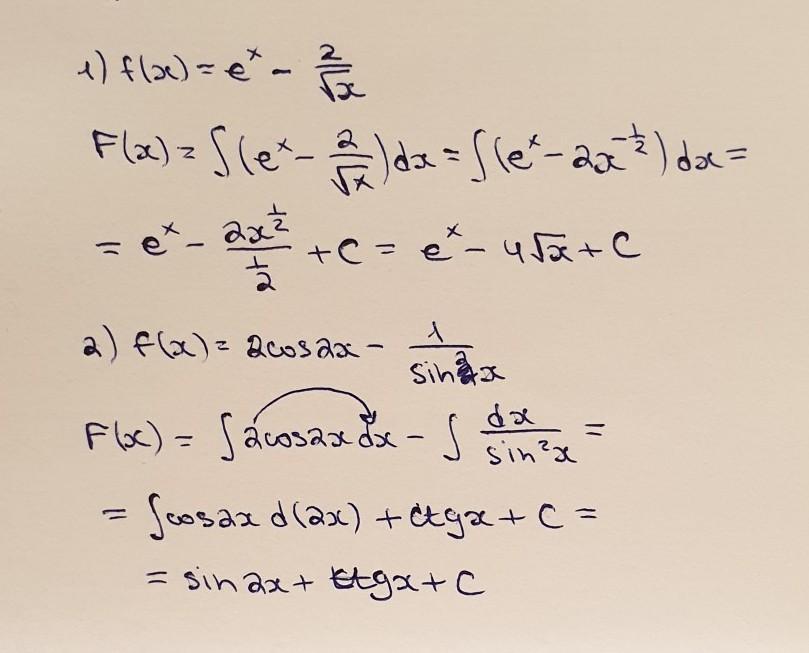 1) f(x) = eˣ - 2/√x
F(x) = ∫(eˣ - 2/√x)dx = ∫(eˣ - 2x^(-1/2))dx =
= eˣ - 2x^(1/2)/(1/2) + C = eˣ - 4√x + C
2) f(x) = 2cos2x - 1/sin²x
F(x) = ∫2cos2x dx - ∫dx/sin²x =
= ∫cos2x d(2x) + ctgx + C =
= sin2x + ctgx + C